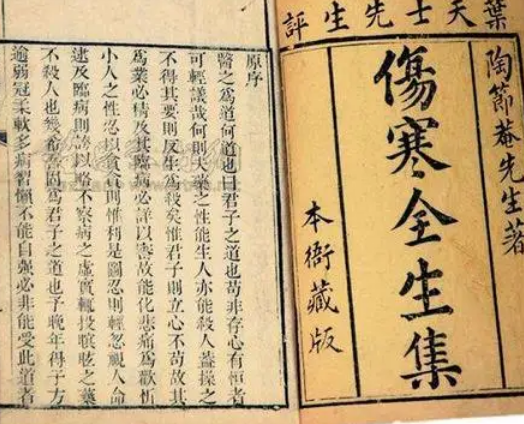 葉天士先生評
陶節菴先生著
傷寒全生集
本衙藏版
原序
醫之爲道何道也曰君子之道也苟非存心有恒者
可輕議哉何則夫藥之性能生人亦能殺人蓋操之
不得其要則反生爲殺矣惟君子則立心不苟故其
爲業必精及其臨病必詳以審故能化悲痛爲歡忻
小人之性忍以貪貪則惟利是圖忍則輕忽視人命
逮及臨病則誇以略不察病之虛實輒投瞑眩之藥
不殺人也幾希吾固爲君子之道也予晚年得子方
逾弱冠柔軟多病習懶不能自強必非能受此道者